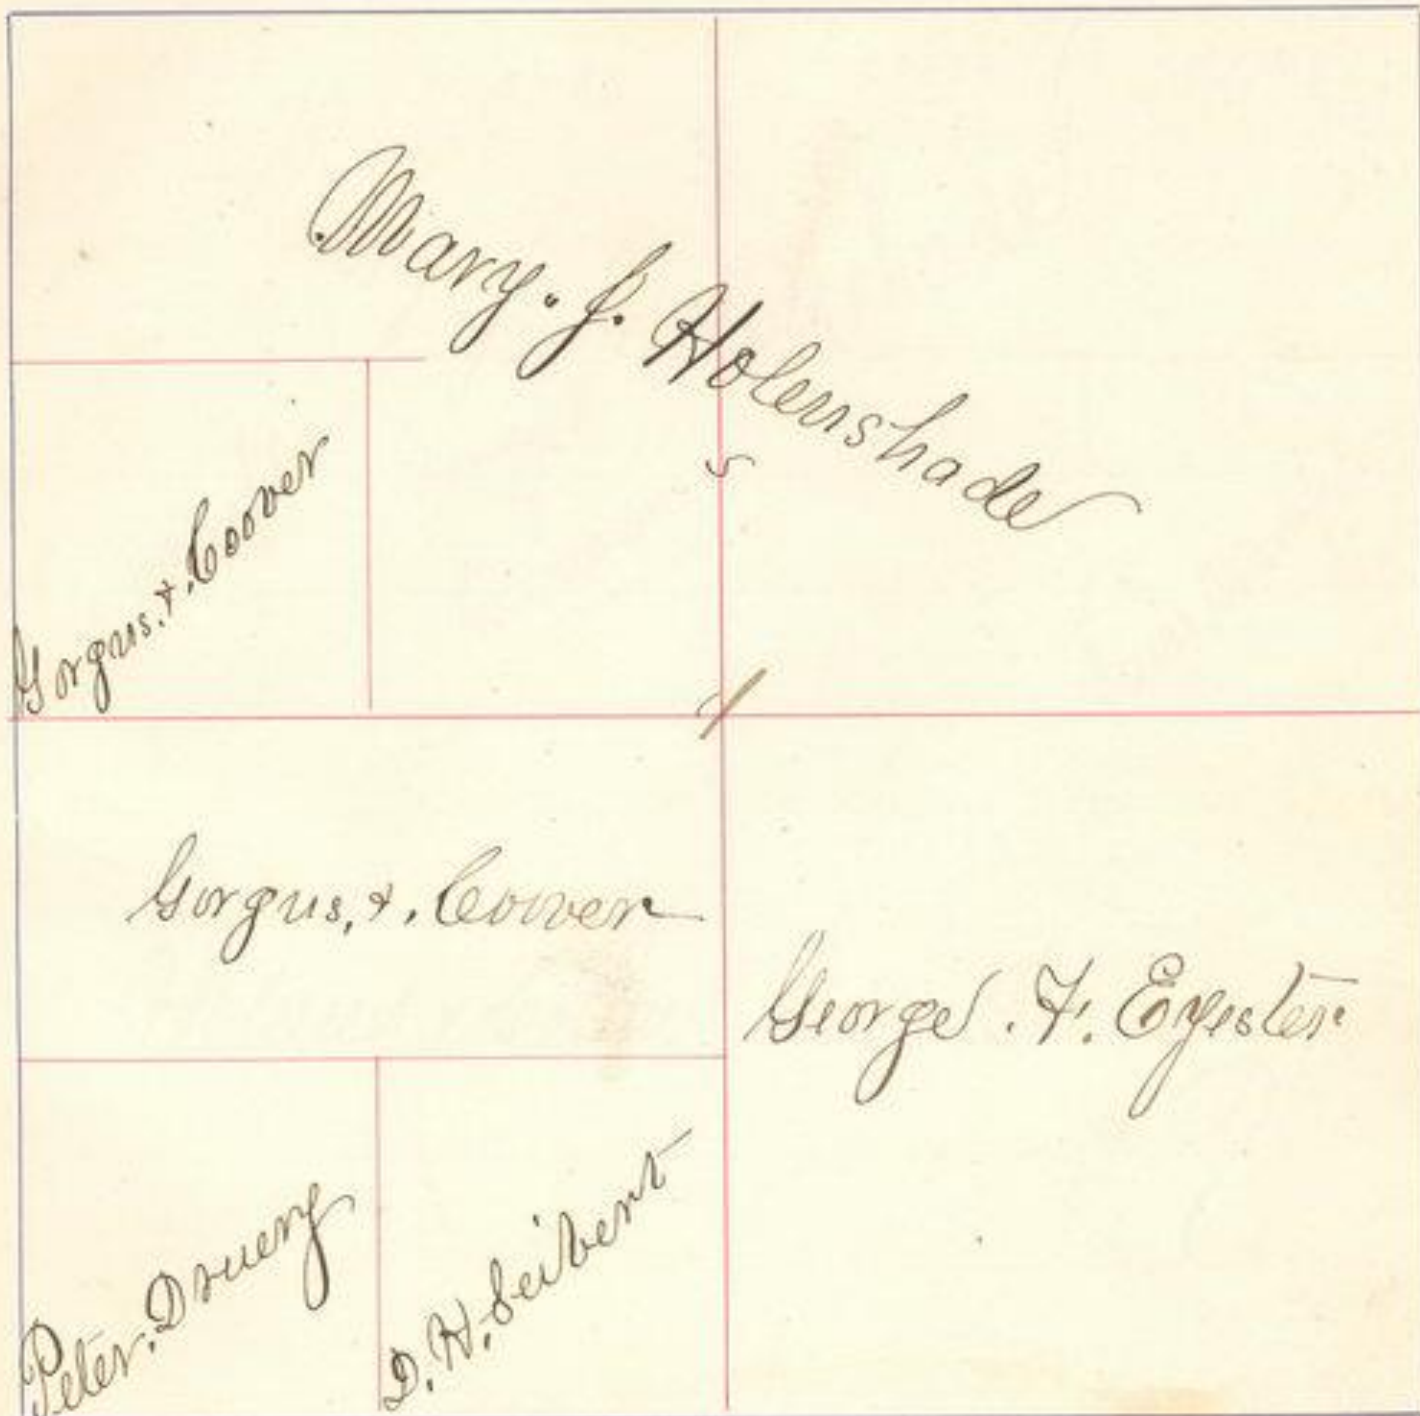 Mary. J. Holenshade
5
Gorgus. &. Coover
Gorgus, &. Coover
George. F. Eyester
Peter. Druery
D. H. Seibert